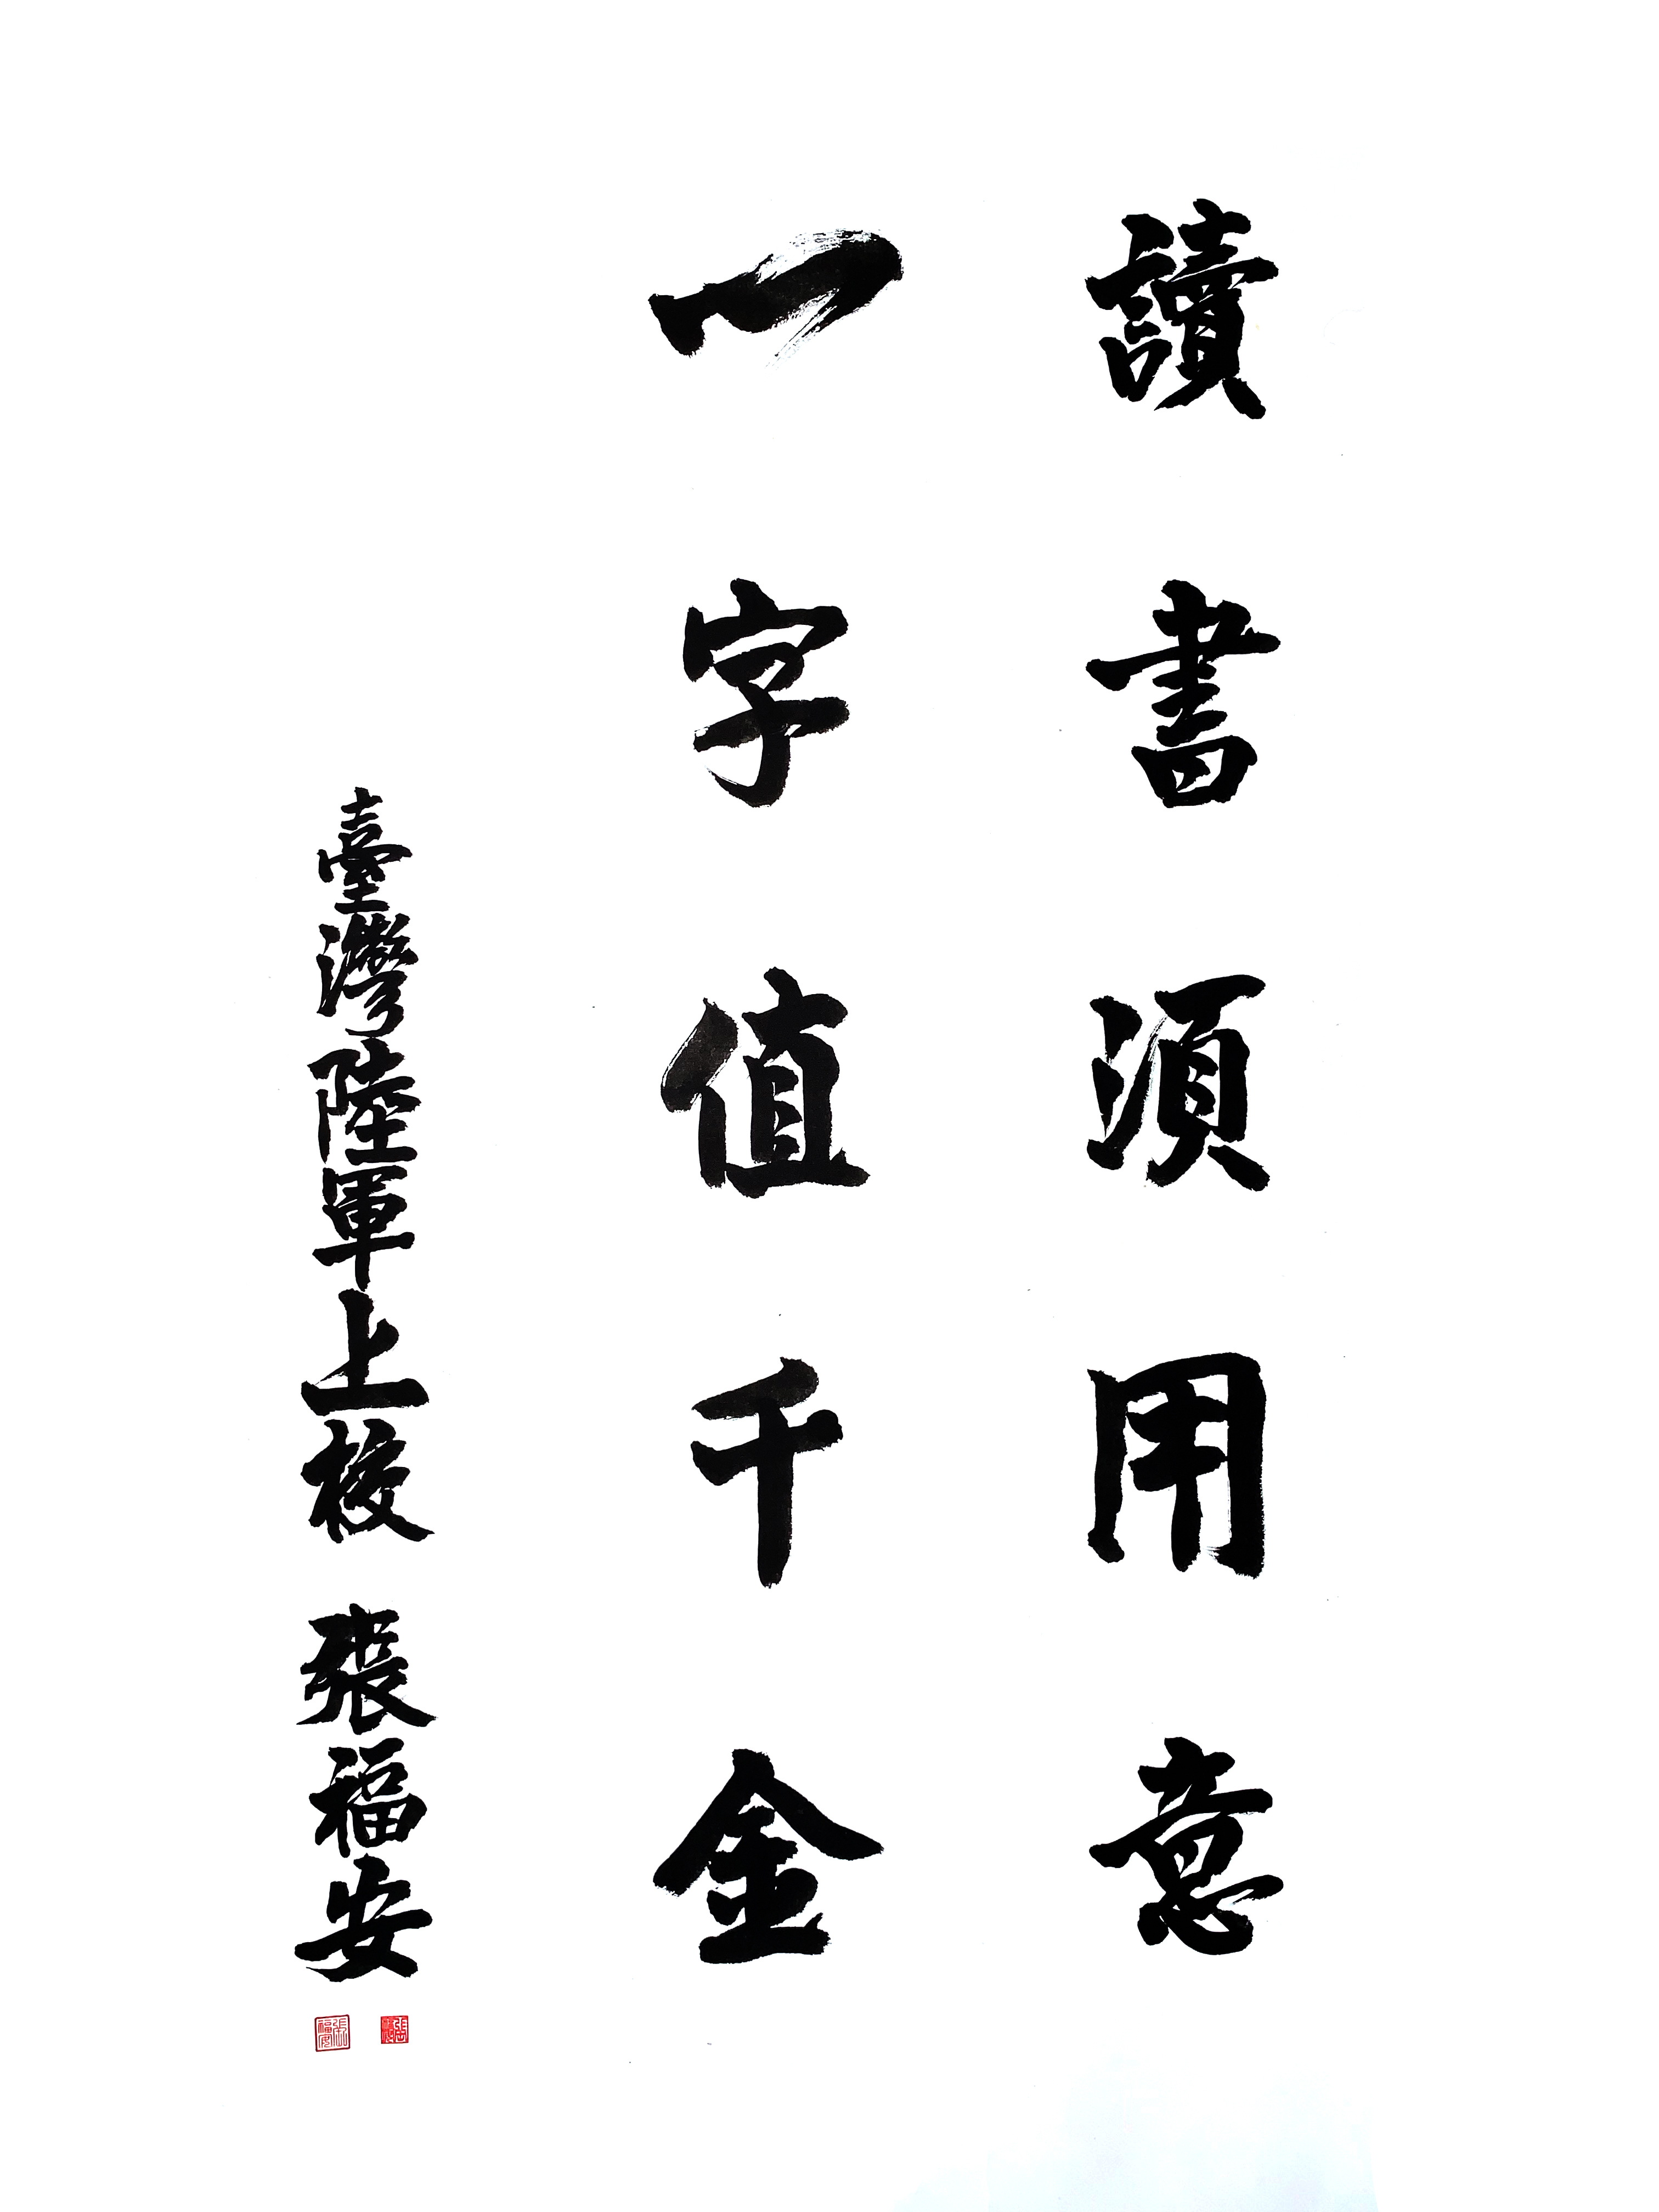 讀書須用意
一字值千金
臺灣陸軍上校 張福安